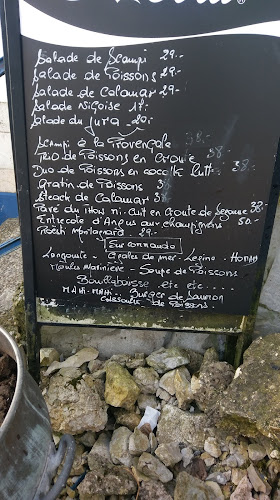 Salade de Scampi 29.-
Salade de Poissons 29.-
Salade de Calamar 29.-
Salade Niçoise 17.-
Salade du Jura 20.-
Scampi à la Provençale 38.-
Trio de Poissons en Croûte 38.
Duo de Poissons en cocotte lutt 38.-
Gratin de Poissons
Steack de Calamar 38
Pavé du thon mi-cuit en Croute de Sésame 38.-
Entrecôte d'Angus aux champignons 50.-
Rösti Montagnard 29.-
Sur commande
Langouste - de mer - - Homard
Moules Marinière - Soupe de Poissons
Bouillabaisse etc ...
MAHI-MAHI Burger de Saumon
Cassoulet de Poissons